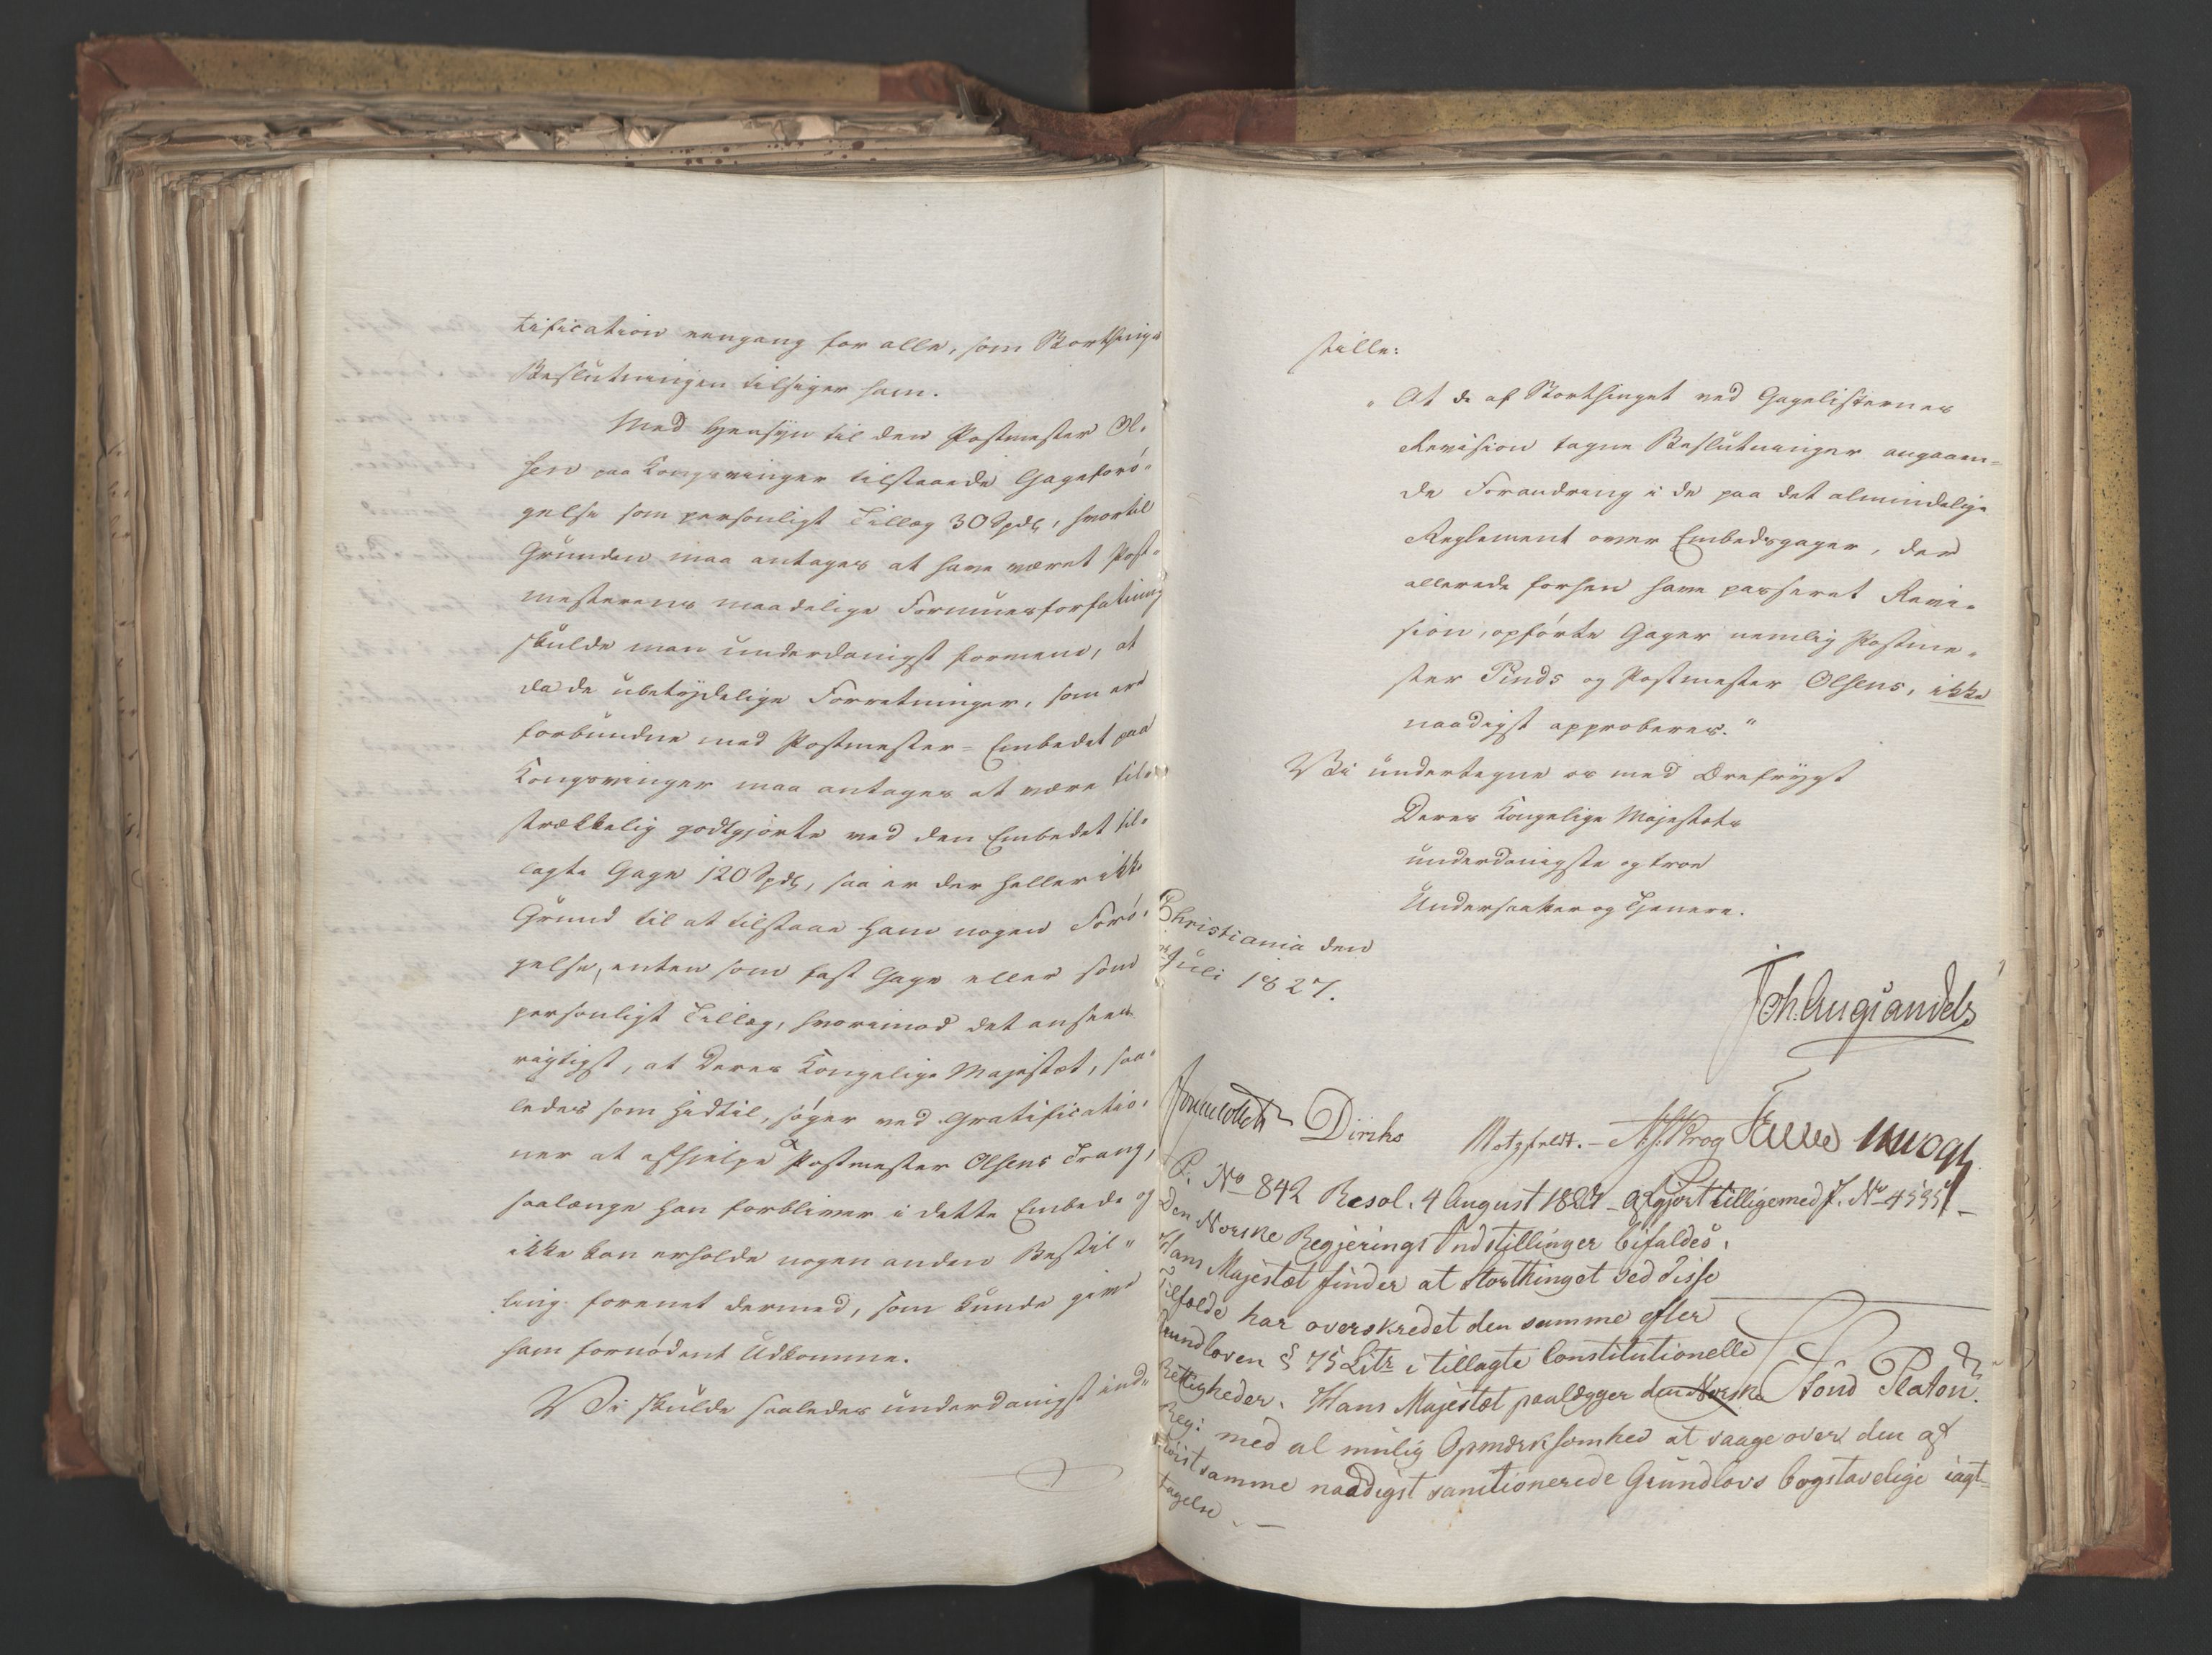 tification eengang for alle, som Storthings
Beslutningen tilsiger ham.
Med Hensyn til den Postmester Ol-
sen paa Kongsvinger tilstaaede Gageforö-
gelse som personligt Tillæg 30 Spdlr, hvortil
Grunden maa antages at have været Post-
mesterens maadelige Formuesforfatning
skulde man underdanigst formene, at
da de ubetydelige Forretninger, som ere
forbundne med Postmester-Embedet paa
Kongsvinger maa antages at være til-
strækkelig godtgjorte ved den Embedet til-
lagte Gage 120 Spdlr, saa er der heller ikke
Grund til at tilstaae ham nogen Forö-
gelse, enten som fast Gage eller som
personligt Tillæg, hvorimod det ansees
rigtigst, at Deres Kongelige Majestæt, saa-
ledes som hidtil, söger ved Gratificatio-
ner at afhjelpe Postmester Olsens Trang,
saalænge han forbliver i dette Embede og
ikke kan erholde nogen anden Bestil-
ling forenet dermed, som kunde give
ham fornödent Udkomme.
Vi skulde saaledes underdanigst ind-
stille:
"At de af Storthinget ved Gagelisternes
Revision tagne Beslutninger angaaen-
de Forandring i de paa det almindelige
Reglement over Embedsgager, der
allerede forhen have passeret Revi-
sion, opförte Gager nemlig Postme-
ster Pinds og Postmester Olsens, ikke
naadigst approberes."
Vi undertegne os med Ærefrygt
Deres Kongelige Majestæts
underdanigste og troe
Undersaatter og Tjenere.
Christiania den
Juli 1827.
Joh. Aug. Sandels
Jonas Collett Diriks Motzfeldt. - Krog Fasting JHVogt
P. No 842 Resol. 4 August 1827 - afgjort tilligemed J. No 4595 -
Den Norske Regjerings Indstillinger bifaldes.
Hans Majestæt finder at Storthinget ved disse
Tilfælde har overskredet den samme efter
Grundloven § 75 Litr i tillagte Constitutionelle
Rettigheder. Hans Majestæt paalægger den Norske
Reg: med al mulig Opmærksomhed at vaage over den af
Höist samme naadigst sanctionerede Grundlovs bogstavelige iagt-
tagelse. -
Due Platou.